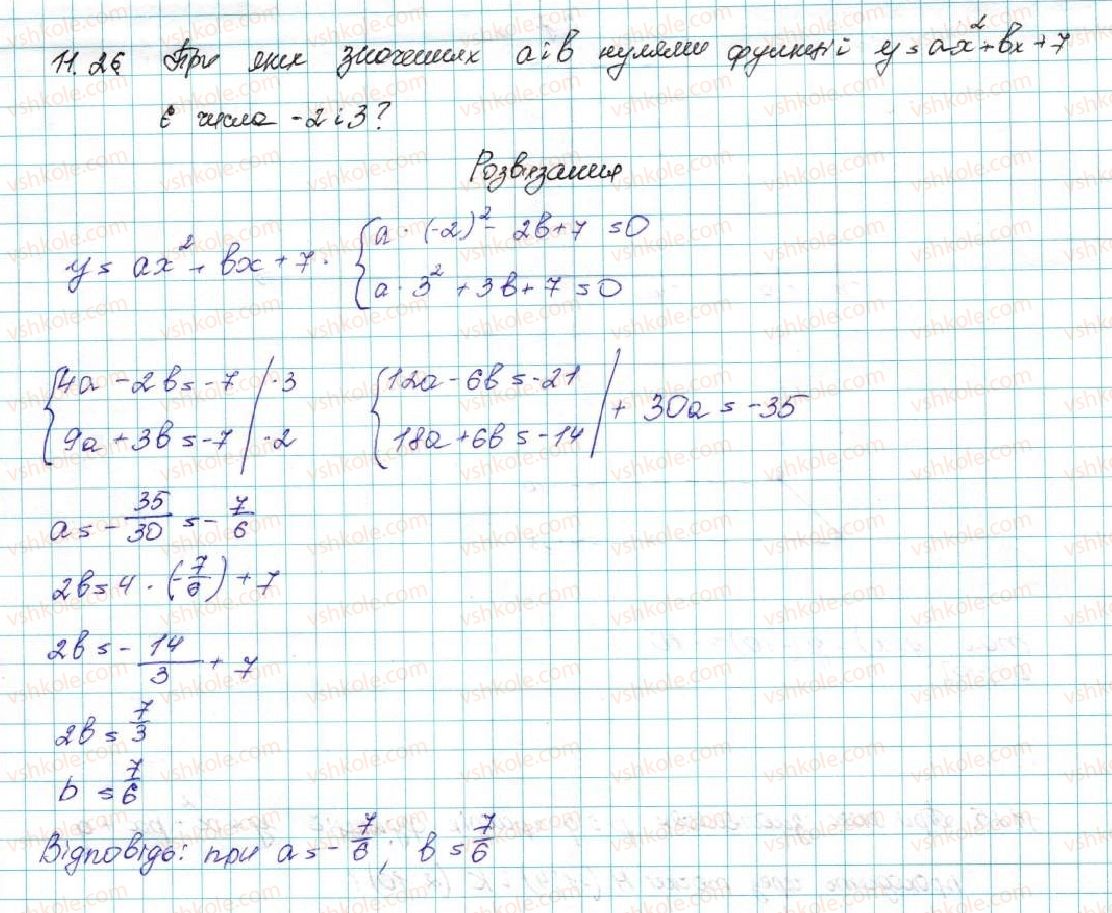 11.26 При яких значеннях a i b нулями функції y = ax² + bx + 7
є числа -2 i 3?
Розв'язання
y = ax² + bx + 7. { a · (-2)² - 2b + 7 = 0
a · 3² + 3b + 7 = 0
{ 4a - 2b = -7 | ·3 { 12a - 6b = -21
9a + 3b = -7 | ·2 18a + 6b = -14 | + 30a = -35
a = - 35/30 = - 7/6
2b = 4 · (- 7/6) + 7
2b = - 14/3 + 7
2b = 7/3
b = 7/6
Відповідь: при a = - 7/6; b = 7/6
vshkole.com